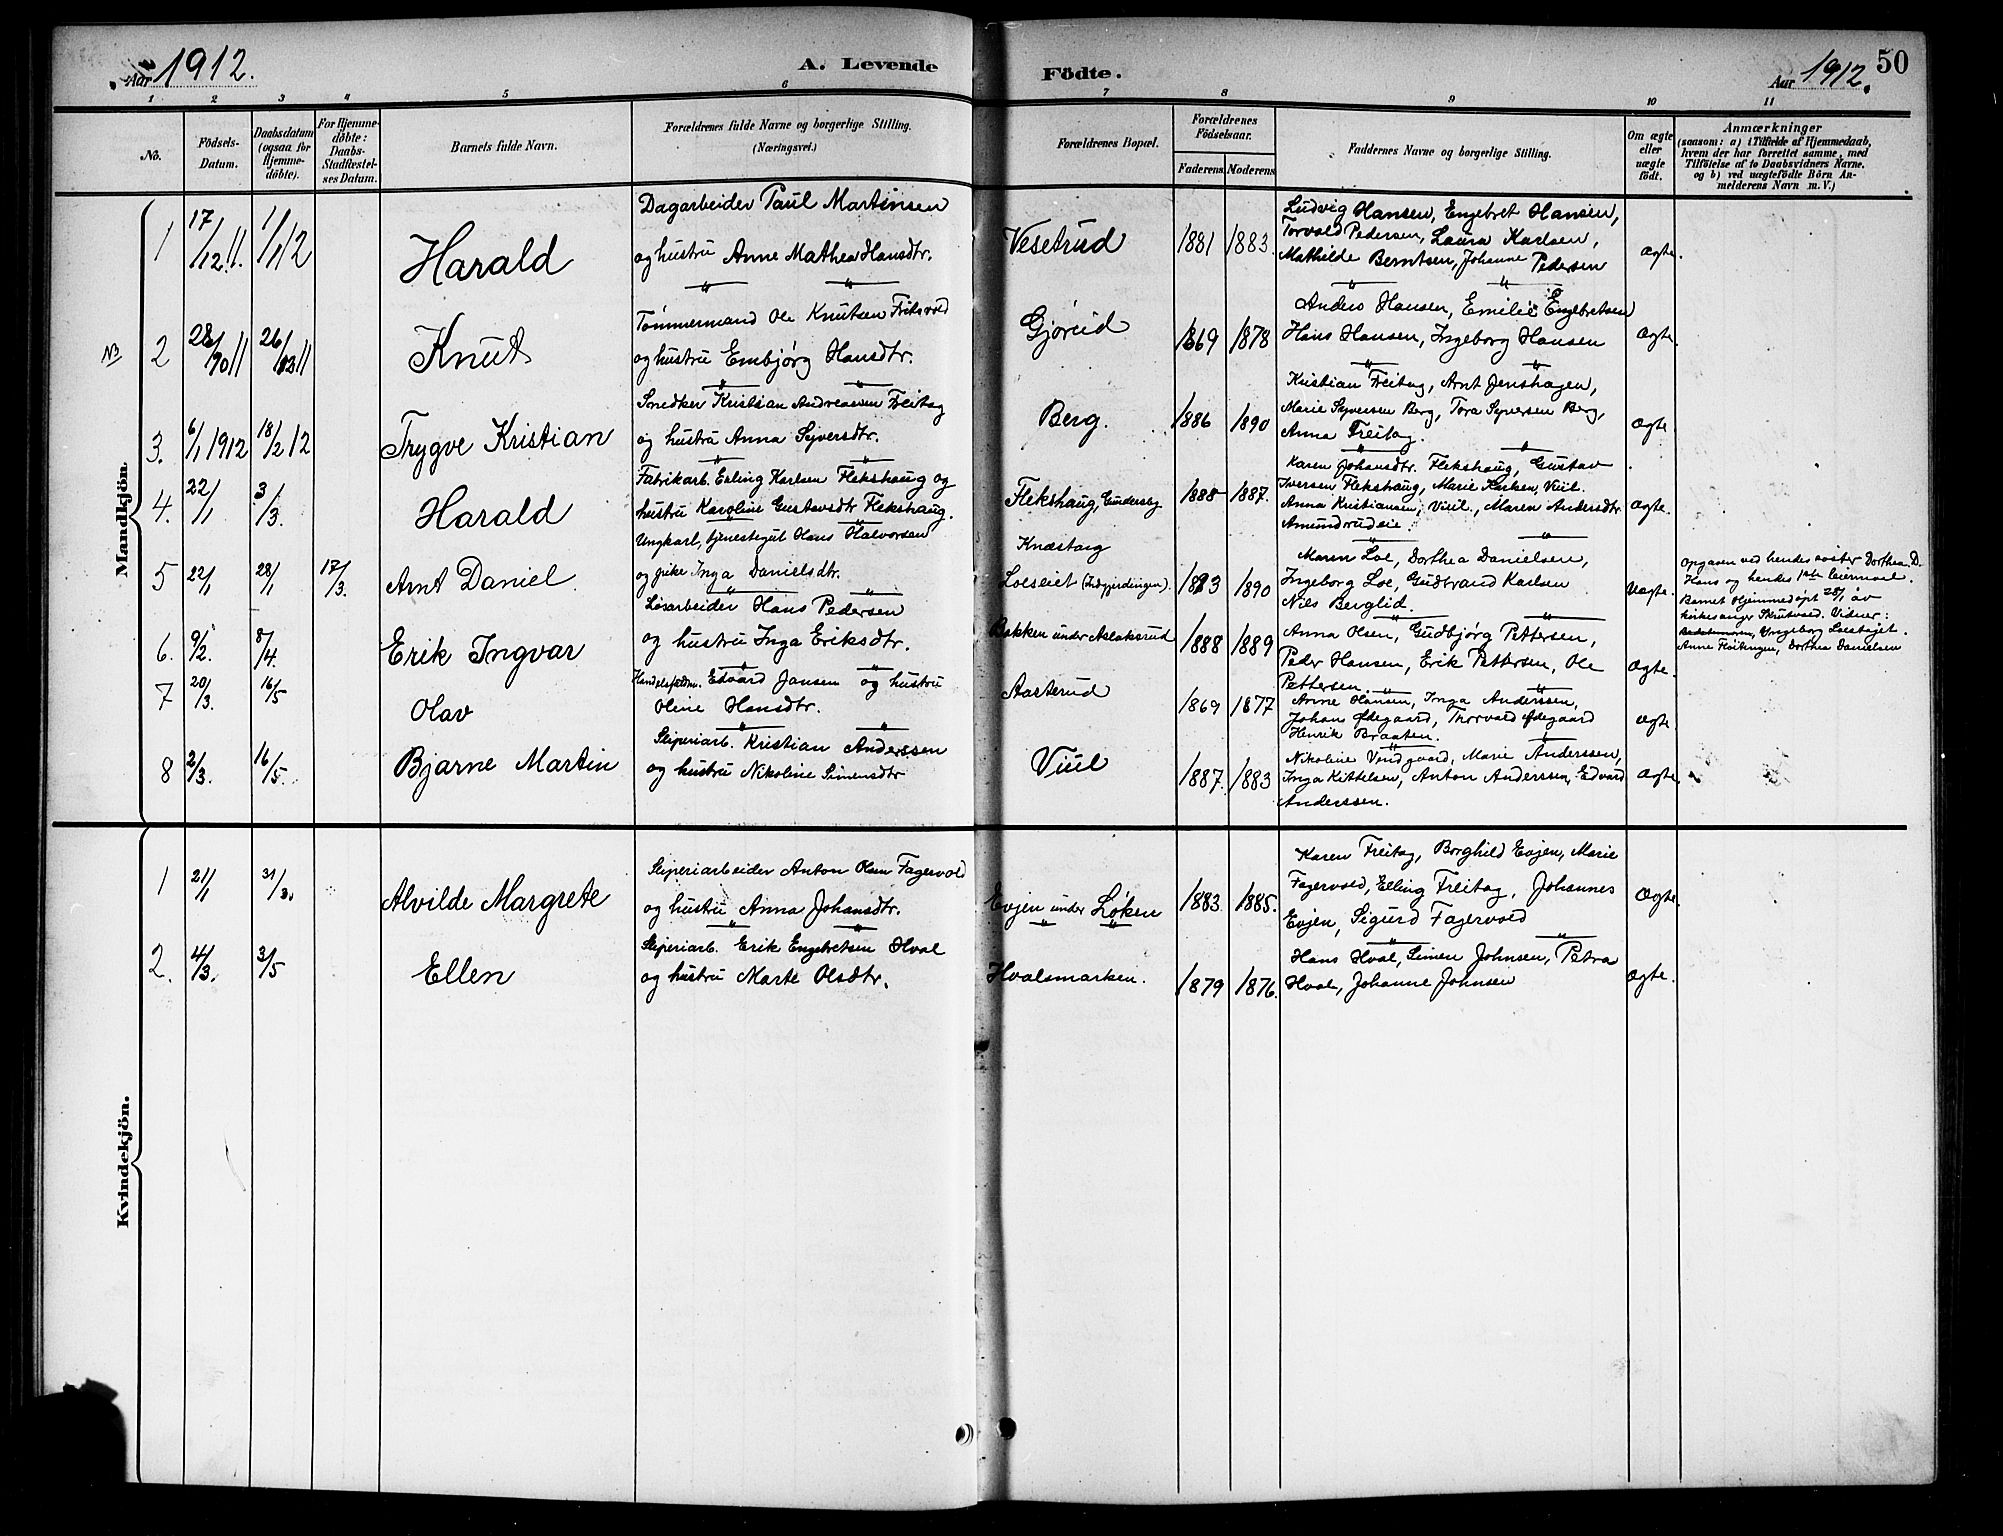 Aar 1912. A. Levende Födte. Aar 1912. 50
1 2 3 4 5 6 7 8 9 10 11
No. Födsels-Datum. Daabsdatum (ogsaa for Hjemme-döbte). For Hjemme-döbte: Daabs-Stadfæstel-ses Datum. Barnets fulde Navn. Forældrenes fulde Navne og borgerlige Stilling. (Næringsvei.) Forældrenes Bopæl. Forældrenes Födselsaar. Faderens Moderens Faddernes Navne og borgerlige Stilling. Om ægte eller uægte födt. Anmærkninger
(saasom: a) i Tilfælde af Hjemmedaab,
hvem der har forrettet samme, med
Tilföielse af to Daabsvidners Navne.
og b) ved uægtefödte Börn An-
melderens Navn m. V.)
Mandkjön.
1 17/12.11. 1/1 12 Harald
Dagarbeider Paul Martinsen
og hustru Anne Mathea Hansdtr.
Vesetrud 1881 1883.
Ludvig Hansen, Engebret Hansen,
Torvald Pedersen, Laura Karlsen,
Mathilde Berntsen, Johanne Pedersen
Ægte.
2 Knut
Tömmermand Ole Knutsen Fritsvold
og hustru Embjørg Hansdtr.
Gjørud 1869 1878
Anders Hansen, Emilie Engebretsen
Hans Hansen, Ingeborg Hansen
Ægte.
3. 6/1 1912 18/2 12 Trygve Kristian
Snedker Kristian Andreassen Freitag
og hustru Anna Syversdtr.
Berg. 1886 1890
Kristian Freitag, Arnt Jenshagen,
Marie Syversen Berg, Tora Syversen Berg,
Anna Freitag.
Ægte
4. 22/1 3/3. Harald
Fabrikarb. Erling Karlsen Flekshaug og
hustru Karoline Gustavsdtr Flekshaug.
Flekshaug, Gundersby 1888 1887.
Karen Johansdtr. Flekshaug, Gustav
Iversen Flekshaug, Marie Karlsen, Viul.
Anna Kristiansen, Viul., Maren Andersdtr
Amundrudeie.
Ægte.
5 22/1 28/1 17/3. Arnt Daniel
Ungkarl, tjenestegut Hans Halvorsen
og pike Inga Danielsdtr.
Knæstang
Loeseiet 1893 1890
Maren Loe, Dorthea Danielsen,
Ingeborg Loe, Gudbrand Karlsen
Nils Berglid.
Uægte.
Opgaven ved hendes søster Dorthea D.
Hans og hendes 1ste leiermaal.
Barnet hjemmedøpt 28/1 av
kirkesanger Skrutvold. Vidner:
Yngeborg Loestajet.
Anne Fløitingen, Dorthea Danielsen
6. 9/2. 8/4. Erik Ingvar
Løsarbeider Hans Pedersen
og hustru Inga Eriksdtr.
Bakken under Aslaksrud 1888 1889
Anna Olsen, Gudbjørg Pettersen,
Peder Hansen, Erik Pettersen, Ole
Pettersen.
Ægte.
7 20/3. 16/5 Olav
Handelsfuldm. Edvard Jansen og hustru
Oline Hansdtr.
Aasterud 1869 1877
Anne Hansen, Inga Anderssen,
Johan Ødegaard, Thorvald Ødegaard
Henrik Braaten.
Ægte
8 2/3. 16/5. Bjarne Martin
Sliperiarb. Kristian Anderssen
og hustru Nikoline Simensdtr
Viul 1887. 1883
Nikoline Vindgaard, Marie Anderssen,
Inga Kittelsen, Anton Anderssen, Edvard
Anderssen.
Ægte
Kvindekjön.
1 21/1 31/3. Alvilde Margrete
Sliperiarbeider Anton Olsen Fagervold
og hustru Anna Johansdtr.
Evjen under Løken 1883. 1885.
Karen Freitag, Borghild Evjen, Marie
Fagervold, Elling Freitag, Johannes
Evjen, Sigurd Fagervold
Ægte.
2. 4/3. 3/5 Ellen
Sliperiarb. Erik Engebretsen Hval
og hustru Marte Olsdtr.
Hvalsmarken. 1879 1876.
Hans Hval, Simen Johnsen, Petra
Hval, Johanne Johnsen
Ægte.